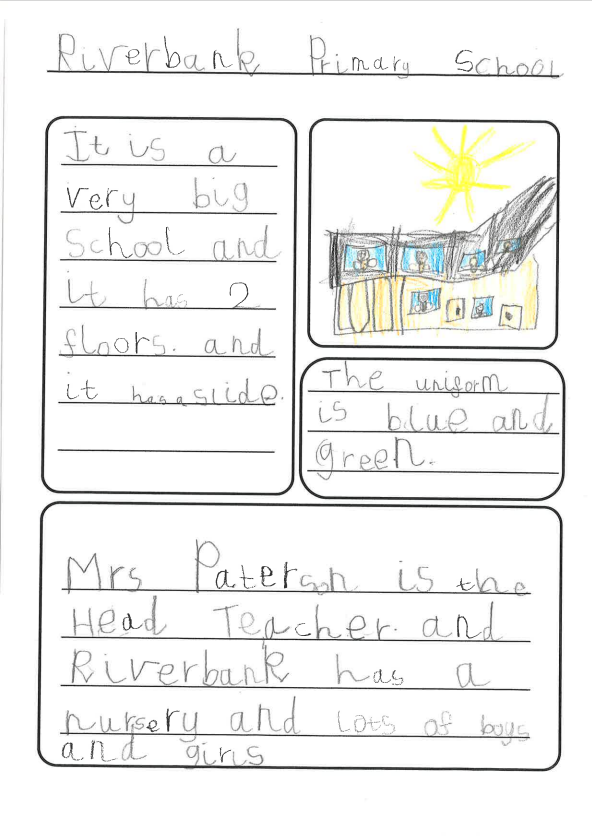 Riverbank Primary School
It is a
very big
School and
it has 2
floors. and
it has a slide.
The uniform
is blue and
green.
Mrs Paterson is the
Head Teacher. and
Riverbank has a
nursery and lots of boys
and girls